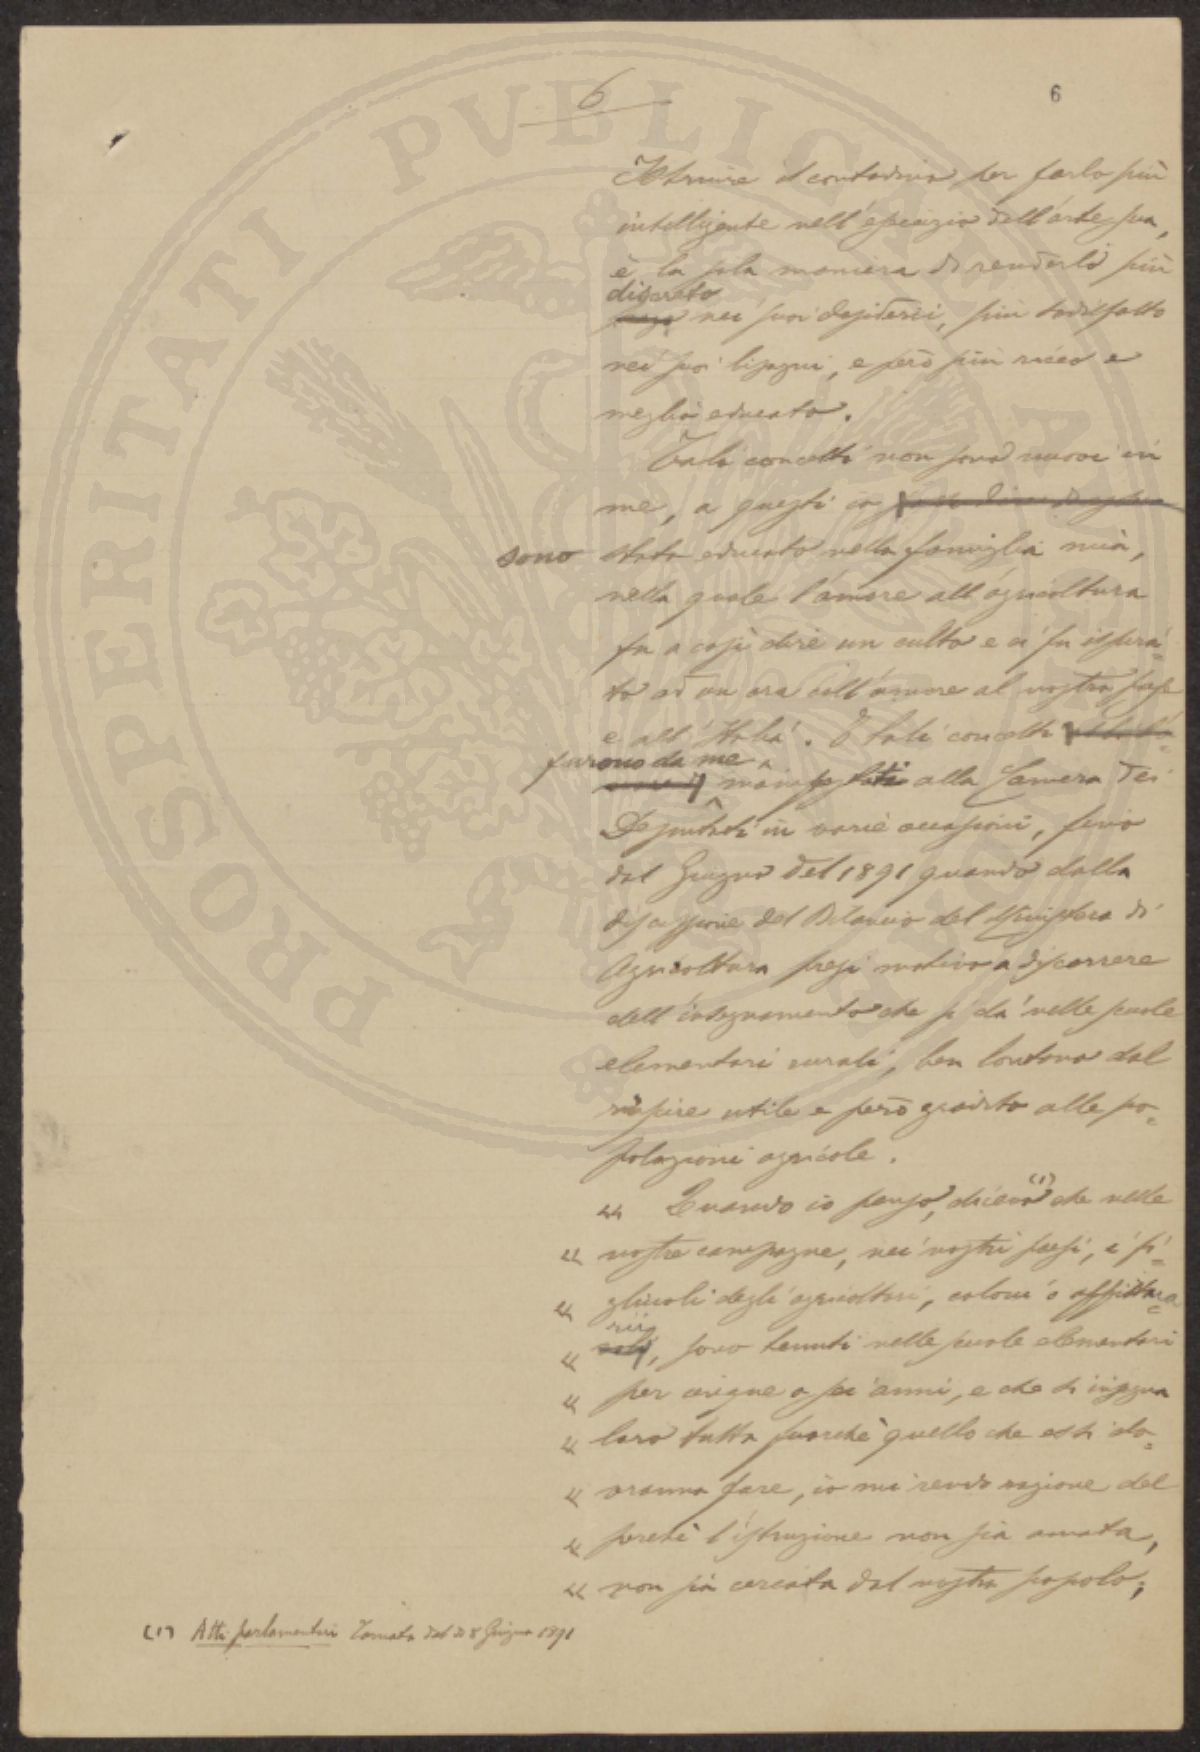 6
6
Istruire il contadino per farlo più
intelligente nell'esercizio dell'arte sua,
è la sola maniera di renderlo più
discreto
nei suoi desiderii, più sodisfatto
nei suoi bisogni, e però più ricco e
meglio educato.
Tali concetti non sono nuovi in
me, a questi io
sono stato educato nella famiglia mia,
nella quale l'amore all'agricoltura
fu a così dire un culto e ci fu ispira=
to ad un'ora coll'amore al nostro paese
e all'Italia. E tali concetti
furono da me
manifestati alla Camera dei
Deputati in varie occasioni, fino
dal Giugno del 1891 quando dalla
discussione del Bilancio del Ministero di
Agricoltura presi motivo a discorrere
dell'insegnamento che si dà nelle scuole
elementari rurali, ben lontano dal
riuscire utile e però gradito alle po=
polazioni agricole.
« Quando io penso, dicevo (1) che nelle
« nostre campagne, nei nostri paesi, i fi=
« gliuoli degli agricoltori, coloni o affittua=
rii
« , sono tenuti nelle scuole elementari
« per cinque o sei anni, e che si insegna
« loro tutto fuorchè quello che essi do=
« vranno fare, io mi rendo ragione del
« perchè l'istruzione non sia amata,
« non sia cercata dal nostro popolo;
(1) Atti parlamentari Tornata del dì 8 Giugno 1891
PROSPERITATI PVBLICAE AVGENDAE